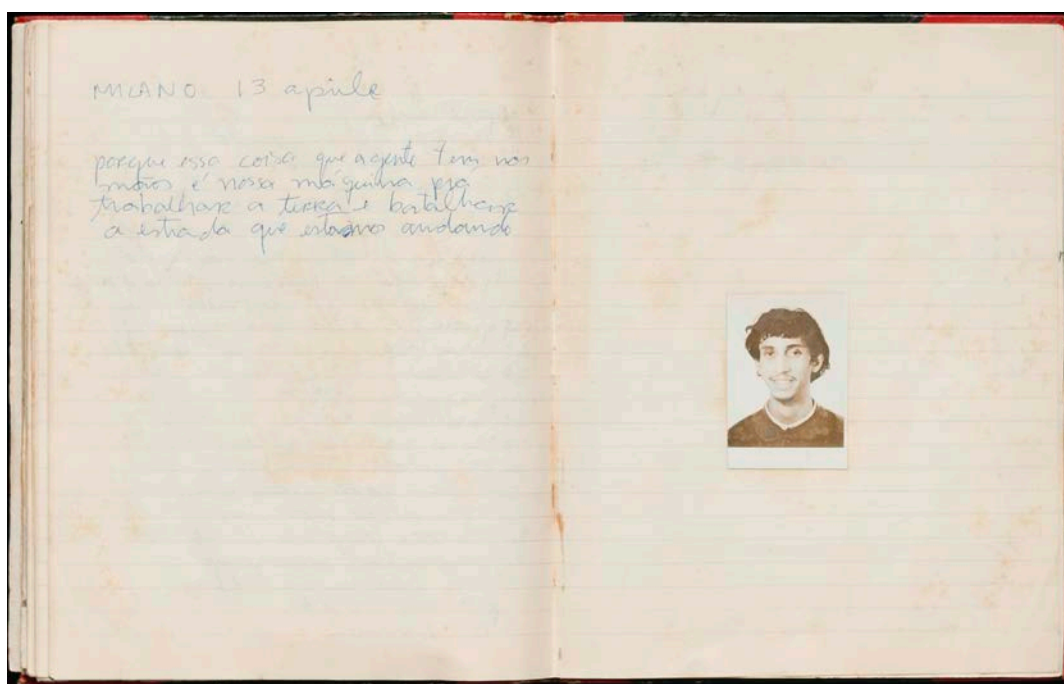 MILANO 13 aprile
porque essa coisa que a gente tem nas
mãos é nossa máquina prá
trabalhar a terra e batalhar
a estrada que estamos andando